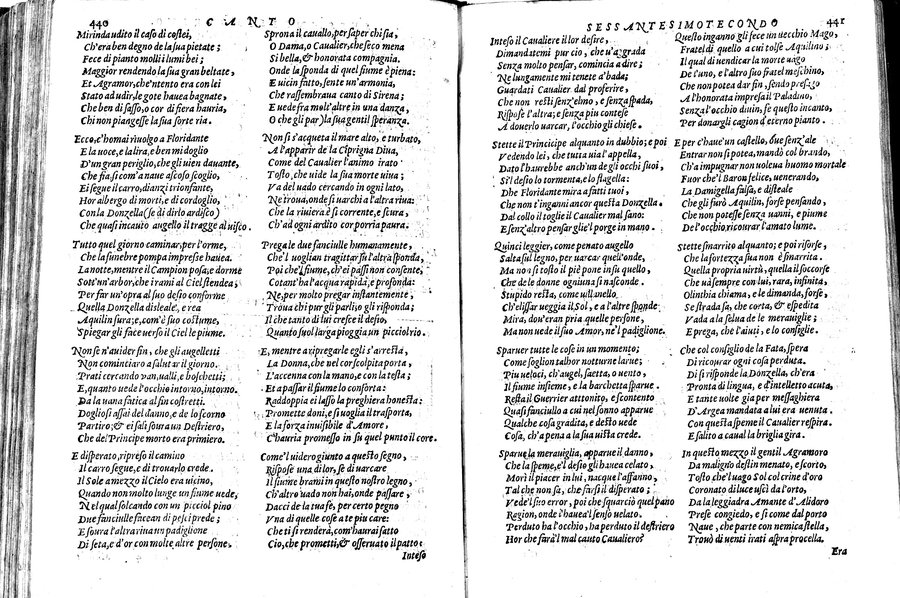 440 CANTO
Mirinda udito il caso di costei,
Ch'era ben degno de la sua pietate;
Fece di pianto molli i lumi bei;
Maggior rendendo la sua gran beltate,
Et Agramor, che'ntento era con lei
Stato ad udir, le gote hauea bagnate,
Che ben di sasso, o cor di fiera hauria,
Chi non piangesse la sua sorte ria.
Ecco, c'homai riuolgo a Floridante
E la uoce, e la lira, e ben mi doglio
D'un gran periglio, che gli uien dauante,
Che fia si com'a naue ascoso scoglio,
Ei segue il carro, dianzi trionfante,
Hor albergo di morti, e di cordoglio,
Con la Donzella (se di dirlo ardisco)
Che quasi incauto augello il tragge al uisco.
Tutto quel giorno caminar per l'orme,
Che la funebre pompa impresse hauea.
La notte, mentre il Campion posa, e dorme
Sott'un'arbor, che i rami al Ciel stendea,
Per far un'opra al suo desio conforme
Quella Donzella disleale, e rea
Aquilin fura; e, com'è suo costume,
Spiegar gli face uerso il Ciel le piume.
Non se n'auide fin, che gli augelletti
Non cominciaro a salutar il giorno.
Prati cercando uan, ualli, e boschetti;
E, quanto uede l'occhio intorno, intorno.
Da la uana fatica al fin costretti.
Dogliosi assai del danno, e de lo scorno
Partiro; & ei salì soura un Destriero,
Che del Principe morto era primiero.
E disperato, ripreso il camino
Il carro segue, e di trouarlo crede.
Il Sole a mezzo il Cielo era uicino,
Quando non molto lunge un fiume uede,
Nel qual solcando con un picciol pino
Due fanciulle facean di pesci prede;
E soura l'altra riua un padiglione
Di seta, e d'or con molte altre persone,
Sprona il cauallo, per saper chi sia,
O Dama, o Caualier, che seco mena
Si bella, & honorata compagnia.
Onde la sponda di quel fiume è piena:
E uicin fatto, sente un'armonia,
Che rassembraua canto di Sirena;
E uede fra molt'altre in una danza,
O che gli par) la sua gentil speranza.
Non si s'acqueta il mare alto, e turbato,
A l'apparir de la Ciprigna Diua,
Come del Caualier l'animo irato
Tosto, che uide la sua morte uiua;
Va del uado cercando in ogni lato,
Ne troua, onde si uarchi a l'altra riua:
Che la riuiera è si corrente, e scura,
Ch'ad ogni ardito cor porria paura.
Prega le due fanciulle humanamente,
Che'l uoglian tragittar su l'altra sponda,
Poi che'l fiume, ch'ei passi non consente,
Cotant'ha l'acqua rapida, e profonda:
Ne, per molto pregar instantemente,
Troua chi pur gli parli, o gli risponda;
Il che tanto di lui cresce il desio,
Quanto suol larga pioggia un picciol rio.
E, mentre a ripregarle egli s'arresta,
La Donna, che nel cor scolpita porta,
L'accenna con la mano, e con la testa;
Et a passar il fiume lo conforta:
Raddoppia ei lasso la preghiera honesta:
Promette doni, e si uoglia il trasporta,
E la forza inuisibile d'Amore,
C'hauria promesso in su quel punto il core.
Come'l uider giunto a questo segno,
Rispose una di lor, se di uarcare
Il fiume brami in questo nostro legno,
Ch'altro uado non hai, onde passare,
Dacci de la tua fe, per certo pegno
Vna di quelle cose a te piu care:
Che ti si renderà, com'haurai fatto
Ciò, che prometti, & osseruato il patto:
Inteso
SESSANTESIMOTECONDO 441
Inteso il Caualiere il lor desire,
Dimandatemi pur ciò, che u'aggrada
Senza molto pensar, comincia a dire;
Ne lungamente mi tenete a bada;
Guardati Caualier dal proferire,
Che non resti senz'elmo, e senza spada,
Rispose l'altra; e senza piu contese
A douerlo uarcar, l'occhio gli chiese.
Stette il Principe alquanto in dubbio; e poi
Vedendo lei, che tutta uia l'appella,
Dato l'haurebbe anch'un de gli occhi suoi,
Si'l desio lo tormenta, e lo flagella:
Dhe Floridante mira a fatti tuoi,
Che non t'inganni ancor questa Donzella.
Dal collo il toglie il Caualier mal sano:
E senz'altro pensar glie'l porge in mano.
Quinci leggier, come pennato augello
Salta sul legno, per uarcar quell'onde,
Ma non sì tosto il piè pone in su quello,
Che de le donne ogniuna si nasconde.
Stupido resta, come uillanello
Ch'eclissar uegga il Sol, e a l'altre sponde
Mira, dou'eran pria quelle persone,
Ma non uede il suo Amor, ne'l padiglione.
Sparuer tutte le cose in un momento;
Come soglion talhor notturne larue;
Piu ueloci, ch'augel, saetta, o uento,
Il fiume insieme, e la barchetta sparue.
Resta il Guerrier attonito, e scontento
Quasi fanciullo a cui nel sonno apparue
Qualche cosa gradita, e desto uede
Cosa, ch'a pena a la sua uista crede.
Sparue la merauiglia, apparue il danno,
Che la speme, e'l desio gli hauea celato,
Morì il piacer in lui, nacque l'affanno,
Tal che non sa, che farsi il disperato;
Vede'l suo error, poi che squarciò quel pano
Region, onde l'hauea'l senso uelato.
Perduto ha l'occhio, ha perduto il destriero
Hor che sarà'l mal cauto Caualiero?
Questo inganno gli fece un uecchio Mago,
Fratel di quello a cui tolse Aquilino;
Il qual di uendicar la morte uago
De l'uno, e l'altro suo fratel meschino,
Che non potea dar fin, sendo presago
A l'honorata impresa il Paladino,
Senza l'occhio diuin, fe questo incanto,
Per donargli cagion d'eterno pianto.
E per c'haue un castello, oue senz'ale
Entrar non si potea, mandò col brando,
Ch'a impugnar non uoleua huomo mortale
Fuor che'l Baron felice, uenerando,
La Damigella falsa, e disleale
Che gli furò Aquilin, forse pensando,
Che non potesse senza uanni, e piume
De l'occhio, ricourar l'amato lume.
Stette smarrito alquanto; e poi risorse,
Che la fortezza sua non è smarrita.
Quella propria uirtù, quella il soccorse
Che uà sempre con lui, rara, infinita,
Olinthia chiama, e le dimanda, forse
Se strada sa, che corta, & espedita
Vada a la selua de le merauiglie;
E prega, che l'aiuti, e lo consiglie.
Che col consiglio de la Fata, spera
Di ricourar ogni cosa perduta.
Di sì risponde la Donzella, ch'era
Pronta di lingua, e d'intelletto acuta,
E tante uolte gia per messaghiera
D'Argea mandata a lui era uenuta.
Con questa speme il Caualier respira.
E salito a caual la briglia gira.
In questo mezzo il gentil Agramoro
Da maligno destin menato, e scorto,
Tosto che l'uago Sol col crine d'oro
Coronato di luce uscì da l'orto,
Da la leggiadra Amante d'Alidoro
Prese congiedo, e si come dal porto
Naue, che parte con nemica stella,
Trouò di uenti irati aspra procella.
Era